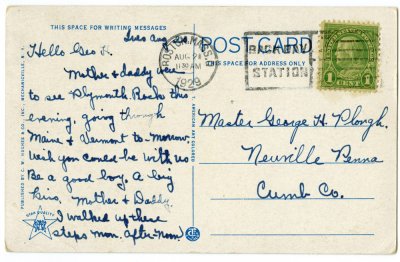 THIS SPACE FOR WRITING MESSAGES
Hello Geo H.
Mother & daddy
to see Plymouth Rock this
evening, going through
Maine & Vermont to-morrow
wish you could be with us
Be a good boy. A big
kiss, Mother & Daddy.
I walked up these
steps mon. after-noon
PUBLISHED BY C. W. HUGHES & CO., INC., MECHANICVILLE, N. Y.
STAR QUALITY
POST CARD
THIS SPACE FOR ADDRESS ONLY
BOSTON, MASS.
AUG
1130 AM
1929
BACK BAY
STATION
1 CENT 1
Master George H. Plough.
Newville Penna
Cumb Co.